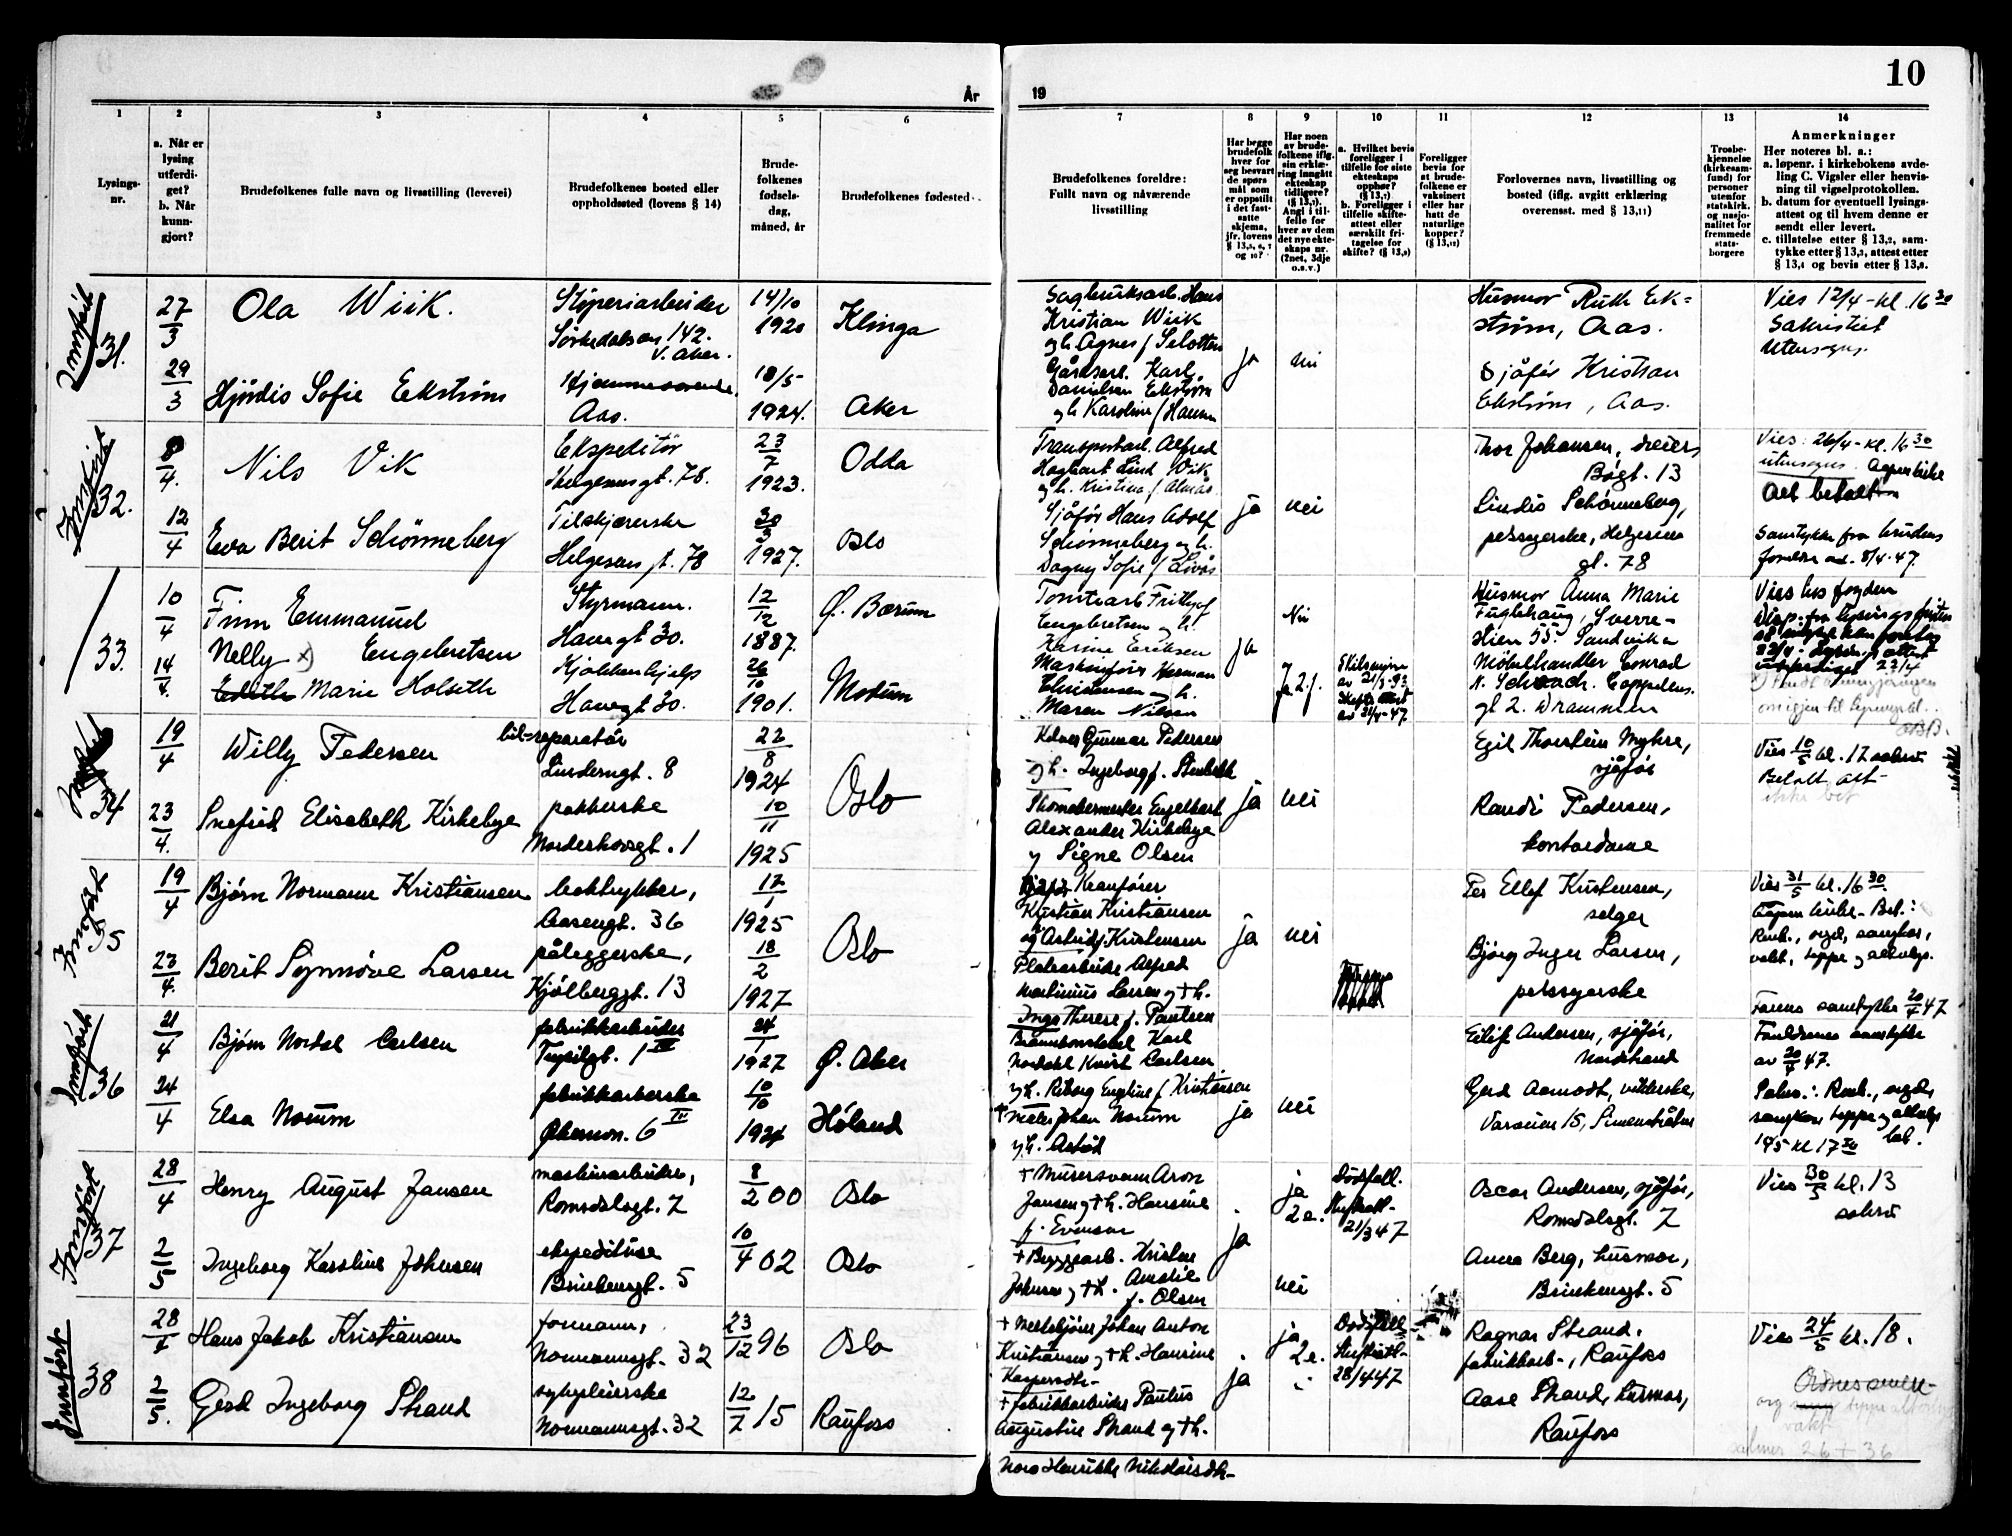 10
År
19
1
2
3
4
5
6
7
8
9
10
11
12
13
14
Lysings-
nr.
a. Når er
lysing
utferdi-
get?
b. Når
kunn-
gjort?
Brudefolkenes fulle navn og livsstilling (levevei)
Brudefolkenes bosted eller
oppholdssted (lovens § 14)
Brude-
folkenes
fødsels-
dag,
måned, år
Brudefolkenes fødested
Brudefolkenes foreldre:
Fullt navn og nåværende
livsstilling
Har begge
brudefolk
hver for
seg besvart
de spørs
mål som
er oppstilt
i det fast-
satte
skjema,
jfr. lovens
Har noen
av brude-
folkene iflg.
sin erklæ-
ring inngått
ekteskap
tidligere?
Angi i til-
felle for
hver av dem
det nye ekte-
skaps nr.
(2net, 3dje
o.s.v.)
a. Hvilket bevis
foreligger i
tilfelle for siste
ekteskaps
opphør?
b. Foreligger i
tilfelle skifte-
attest eller
særskilt fri-
tagelse for
skifte?
Foreligger
bevis for
at brude-
folkene er
vaksinert
eller har
hatt de
naturlige
kopper?
Forlovernes navn, livsstilling og
bosted (iflg. avgitt erklæring
overensst. med § 13,11)
Trosbe-
kjennelse
(kirkesam-
fund) for
personer
utenfor
statskirk.
og nasjo-
nalitet for
fremmede
stats-
borgere
Anmerkninger
Her noteres bl. a.:
a. løpenr. i kirkebokens avde-
ling C. Vigsler eller henvis-
ning til vigselprotokollen.
b. datum for eventuell lysings-
attest og til hvem denne er
sendt eller levert.
c. tillatelse etter § 13,2, sam-
tykke etter § 13,3, attest etter
§ 13,4 og bevis etter § 13,8.
Innført
31.
27/3
29/3
Ola Wiik.
Støperiarbeider
Sørkedalsvn 142.
V. Aker.
14/10
1920
Klinga
Hjørdis Sofie Eckstrøm
Hjemmeværende
Aas.
18/5
1924.
Aker
Sagbruksarb. Hans
Kristian Wiik
Gårdsarb. Karl
Danielsen Eckstrøm
og h. Karoline f Hansen
ja
nei
Husmor Ruth Eck-
strøm, Aas.
Sjåfør Kristian
Eckstrøm, Aas.
Vies 12/4 - kl. 16 30
Sakristiet
Utensogns.
Innført
32.
8/4.
12/4
Nils Vik
Ekspeditør
Helgesensgt. 78.
23/7
1923.
Odda
Eva Berit Schønneberg
Tilskjærerske
Helgesens gt. 78
30/3
1927.
Oslo
Transportarb. Alfred
Hagbart Lind Vik
og h. Kristina f Almås
Sjåfør Hans Adolf
Schønneberg og h.
Dagny Sofie f
ja
nei
Thor Johansen, dreier,
Bøgt. 13
Lindis Schønneberg,
pelssyerske, Helgesens
gt. 78
Vies: 26/4 - kl. 16 30
utensogns.
Alt betalt
Samtykke fra brudens
foreldre av 8/4-47.
33.
10/4
14/4.
Finn Emmanuel
Engebretsen
Styrmann.
Havregt 30.
12/12
1887.
Ø. Bærum
Nelly x)
Edith Marie Holseth
Kjøkkenhjelp
Havregt 30.
26/10
1901.
Modum
Tomtearb Fritjof
Engebretsen og h.
Karine Eriksen
Maskinfører Herman
Christensen og h.
Maren Nilsen
ja
Nei
Ja 2. g.
Husmor Anna Marie
Fuglehaug, Sverre-
stien 55. Sandvika
Møbelhandler Conrad
gt 2. Drammen
Vies hos fogden
Innført
34
19/4
23/4.
Willy Pedersen
bil-reparatør
Linderngt. 8
22/8
1924
Oslo
Snefrid Elisabeth Kirkebye
pakkerske
Marderhovgt. 1
10/11
1925
Kelner Gunnar Pedersen
Skomakermester Engelhart
Alexander Kirkebye
og Signe Olsen
ja
nei
Egil Thorstein Myhre,
sjåfør
Randi Pedersen,
kontordame
Vies 10/5 kl. 12 sakrist
Betalt alt -
ikke bet
Innført
35
19/4
23/4.
Bjørn Normann Kristiansen
boktrykker,
Aasengt. 36
17/1
1925
Oslo
Berit Synnøve Larsen
påleggerske,
Kjølberggt. 13
18/2
1927
Kranfører
Kristian Kristiansen
og Astrid f. Kristensen
Platearbeider Alfred
Martinius Larsen og + h.
Inga Therese f. Paulsen
ja
nei
Per Ellef Kristensen,
selger
Bjørg Inger Larsen,
pelssyerske
Vies 31/5 kl. 16 30.
Farens samtykke 20/4 47
Innført
36
21/4
24/4
Bjørn Nordal Carlsen
fabrikkarbeider
Trysilgt. 1 IV
24/1
1927
Ø. Aker
Elsa Norum
fabrikkarberske
Økernvn. 6 III
10/10
1924
Høland
Brannkonstabel Karl
Nordahl Kvist Carlsen
og h. Petborg Engeline f Kristiansen
+ maler Johan Norum
og h. Astrid
ja
nei
Eilif Andersen, sjåfør,
Nordstrand
Gerd Aamodt, viklerske,
Foreldrenes samtykke
av 20/4 47.
Innført
37
28/4
2/5
Henry August Jansen
maskinarbeider,
Romsdalsgt. 7
8/2 00
Oslo
Ingeborg Karoline Johnsen
ekspeditrise
Brinkensgt. 5
10/4 02
Oslo
+ Murersvenn Aron
Jansen og + h. Hansine
f. Evensen
+ Byggearb. Kristen
Johnsen og + h. Amalie
f. Olsen
ja
ja
2e.
nei
Dødsfall.
Skifteatt.
21/3 47
Oscar Andersen, sjåfør,
Romsdalsgt. 7
Anna Berg, husmor,
Brinkensgt. 5
Vies 30/5 kl. 13
sakrist
Innført
38
28/4
2/5.
Hans Jakob Kristiansen
formann,
Normannsgt. 32
23/12 96
Oslo
Gerd Ingeborg Strand
sykepleierske
Normannsgt. 32
12/7 15
Raufoss
+ Melkekjører Johan Anton
Kristiansen og + h. Hansine
Kaspersdtr.
+ fabrikkarbeider Paulus
Augustin Strand og + h.
Nora Henrikke Nikolaisdtr.
ja
ja
2e.
Dødsfall
Skifteatt.
28/4 47
Ragnar Strand,
fabrikkarb., Raufoss
Aase Strand, husmor,
Raufoss
Vies 24/5 kl. 18.
salmer 26 + 36